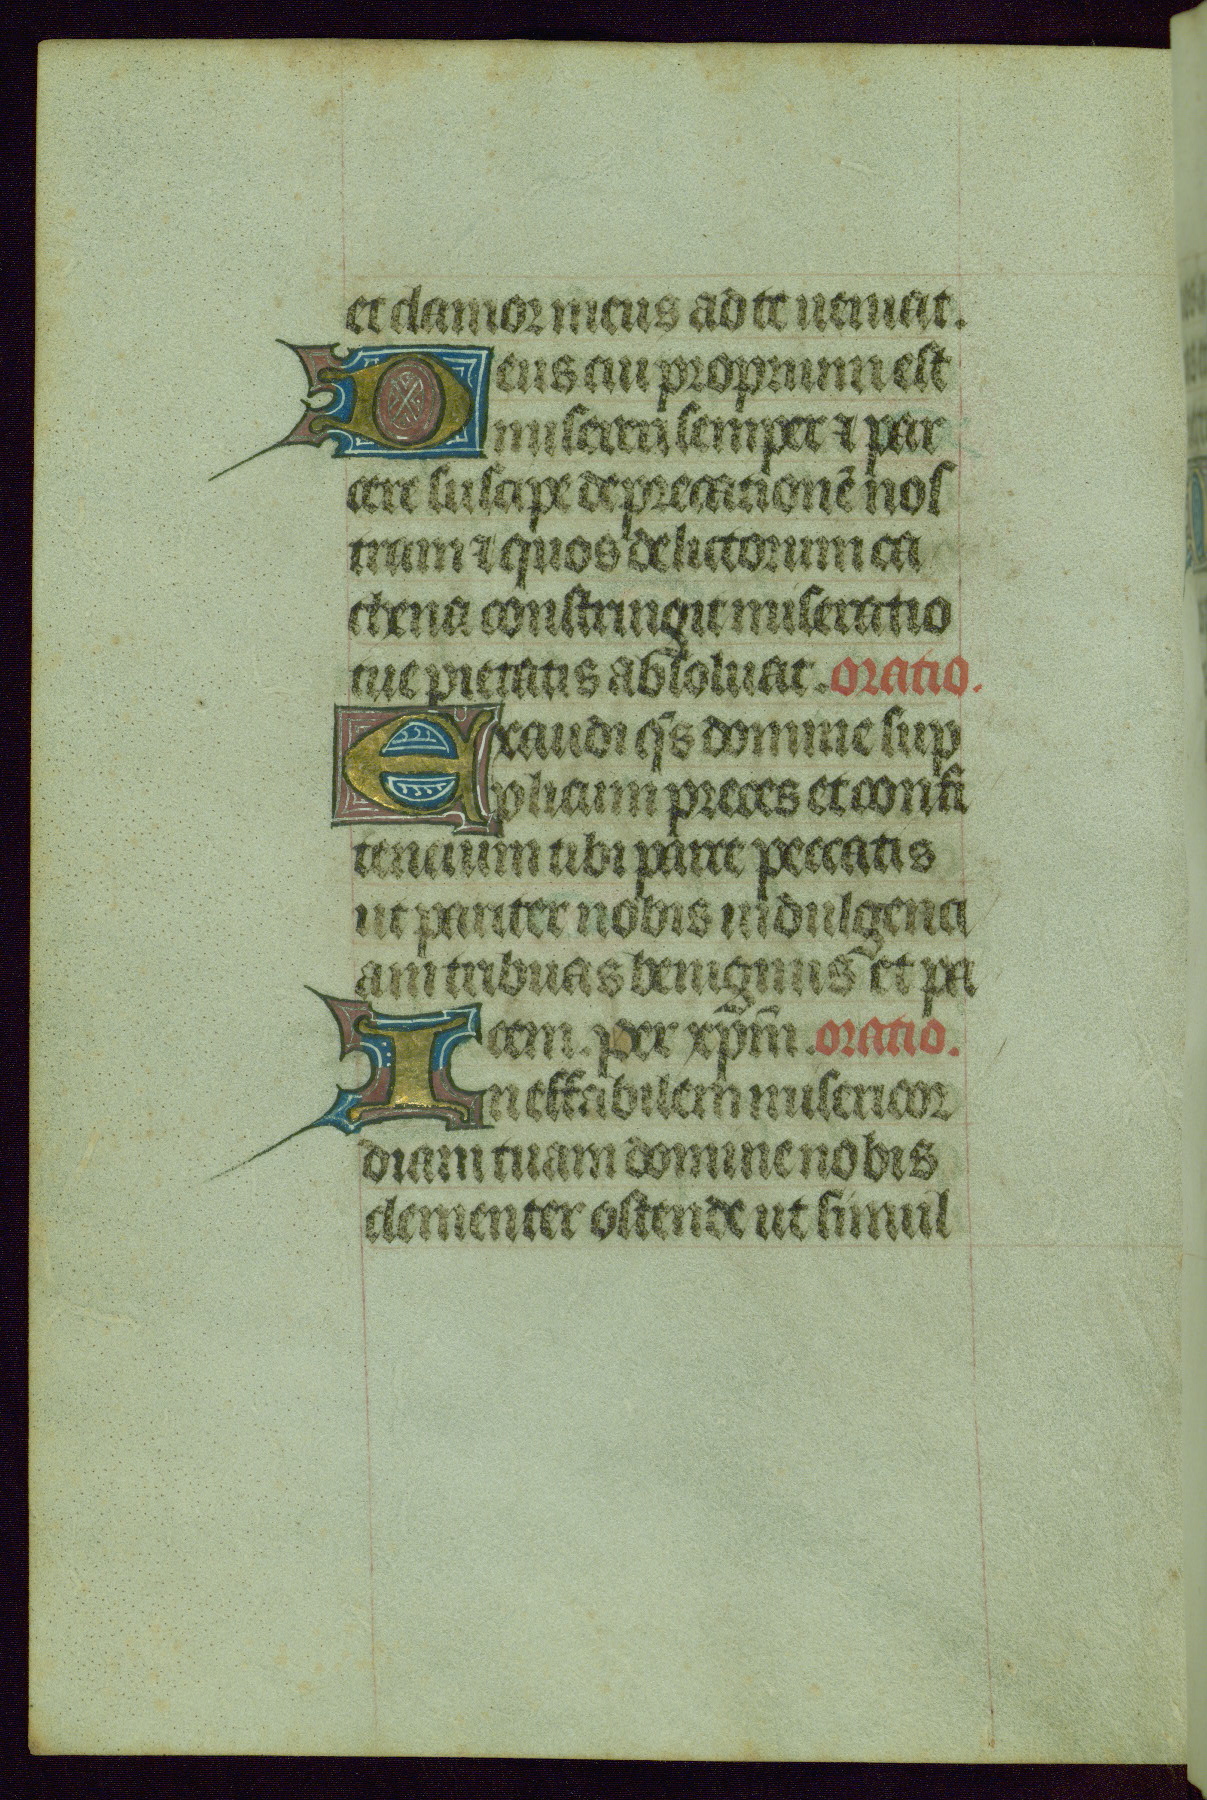 et clamor meus ad te ueniat.
Deus cui proprium est
misereri semper ⁊ par
cere suscipe deprecationē nos
tram ⁊ quos delictorum ca
thena constringit miseratio
tue pietatis absoluat. oratio.
Exaudi q̄s domine sup
plicum preces et confi
tencium tibi parce peccatis
ut pariter nobis indulgenci
am tribuas benignus et pa
cem. per xp̄m. oratio.
Ineffabilem misericor
diam tuam domine nobis
clementer ostende ut simul